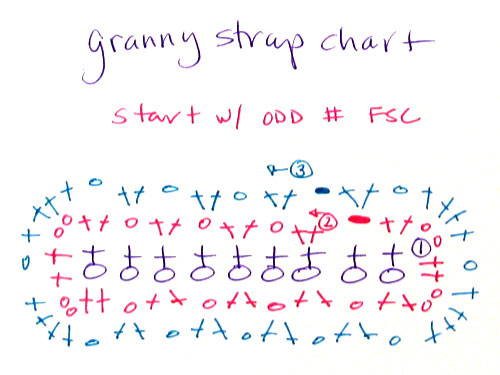 granny strap chart
start w/ ODD # FSC
3
2
1